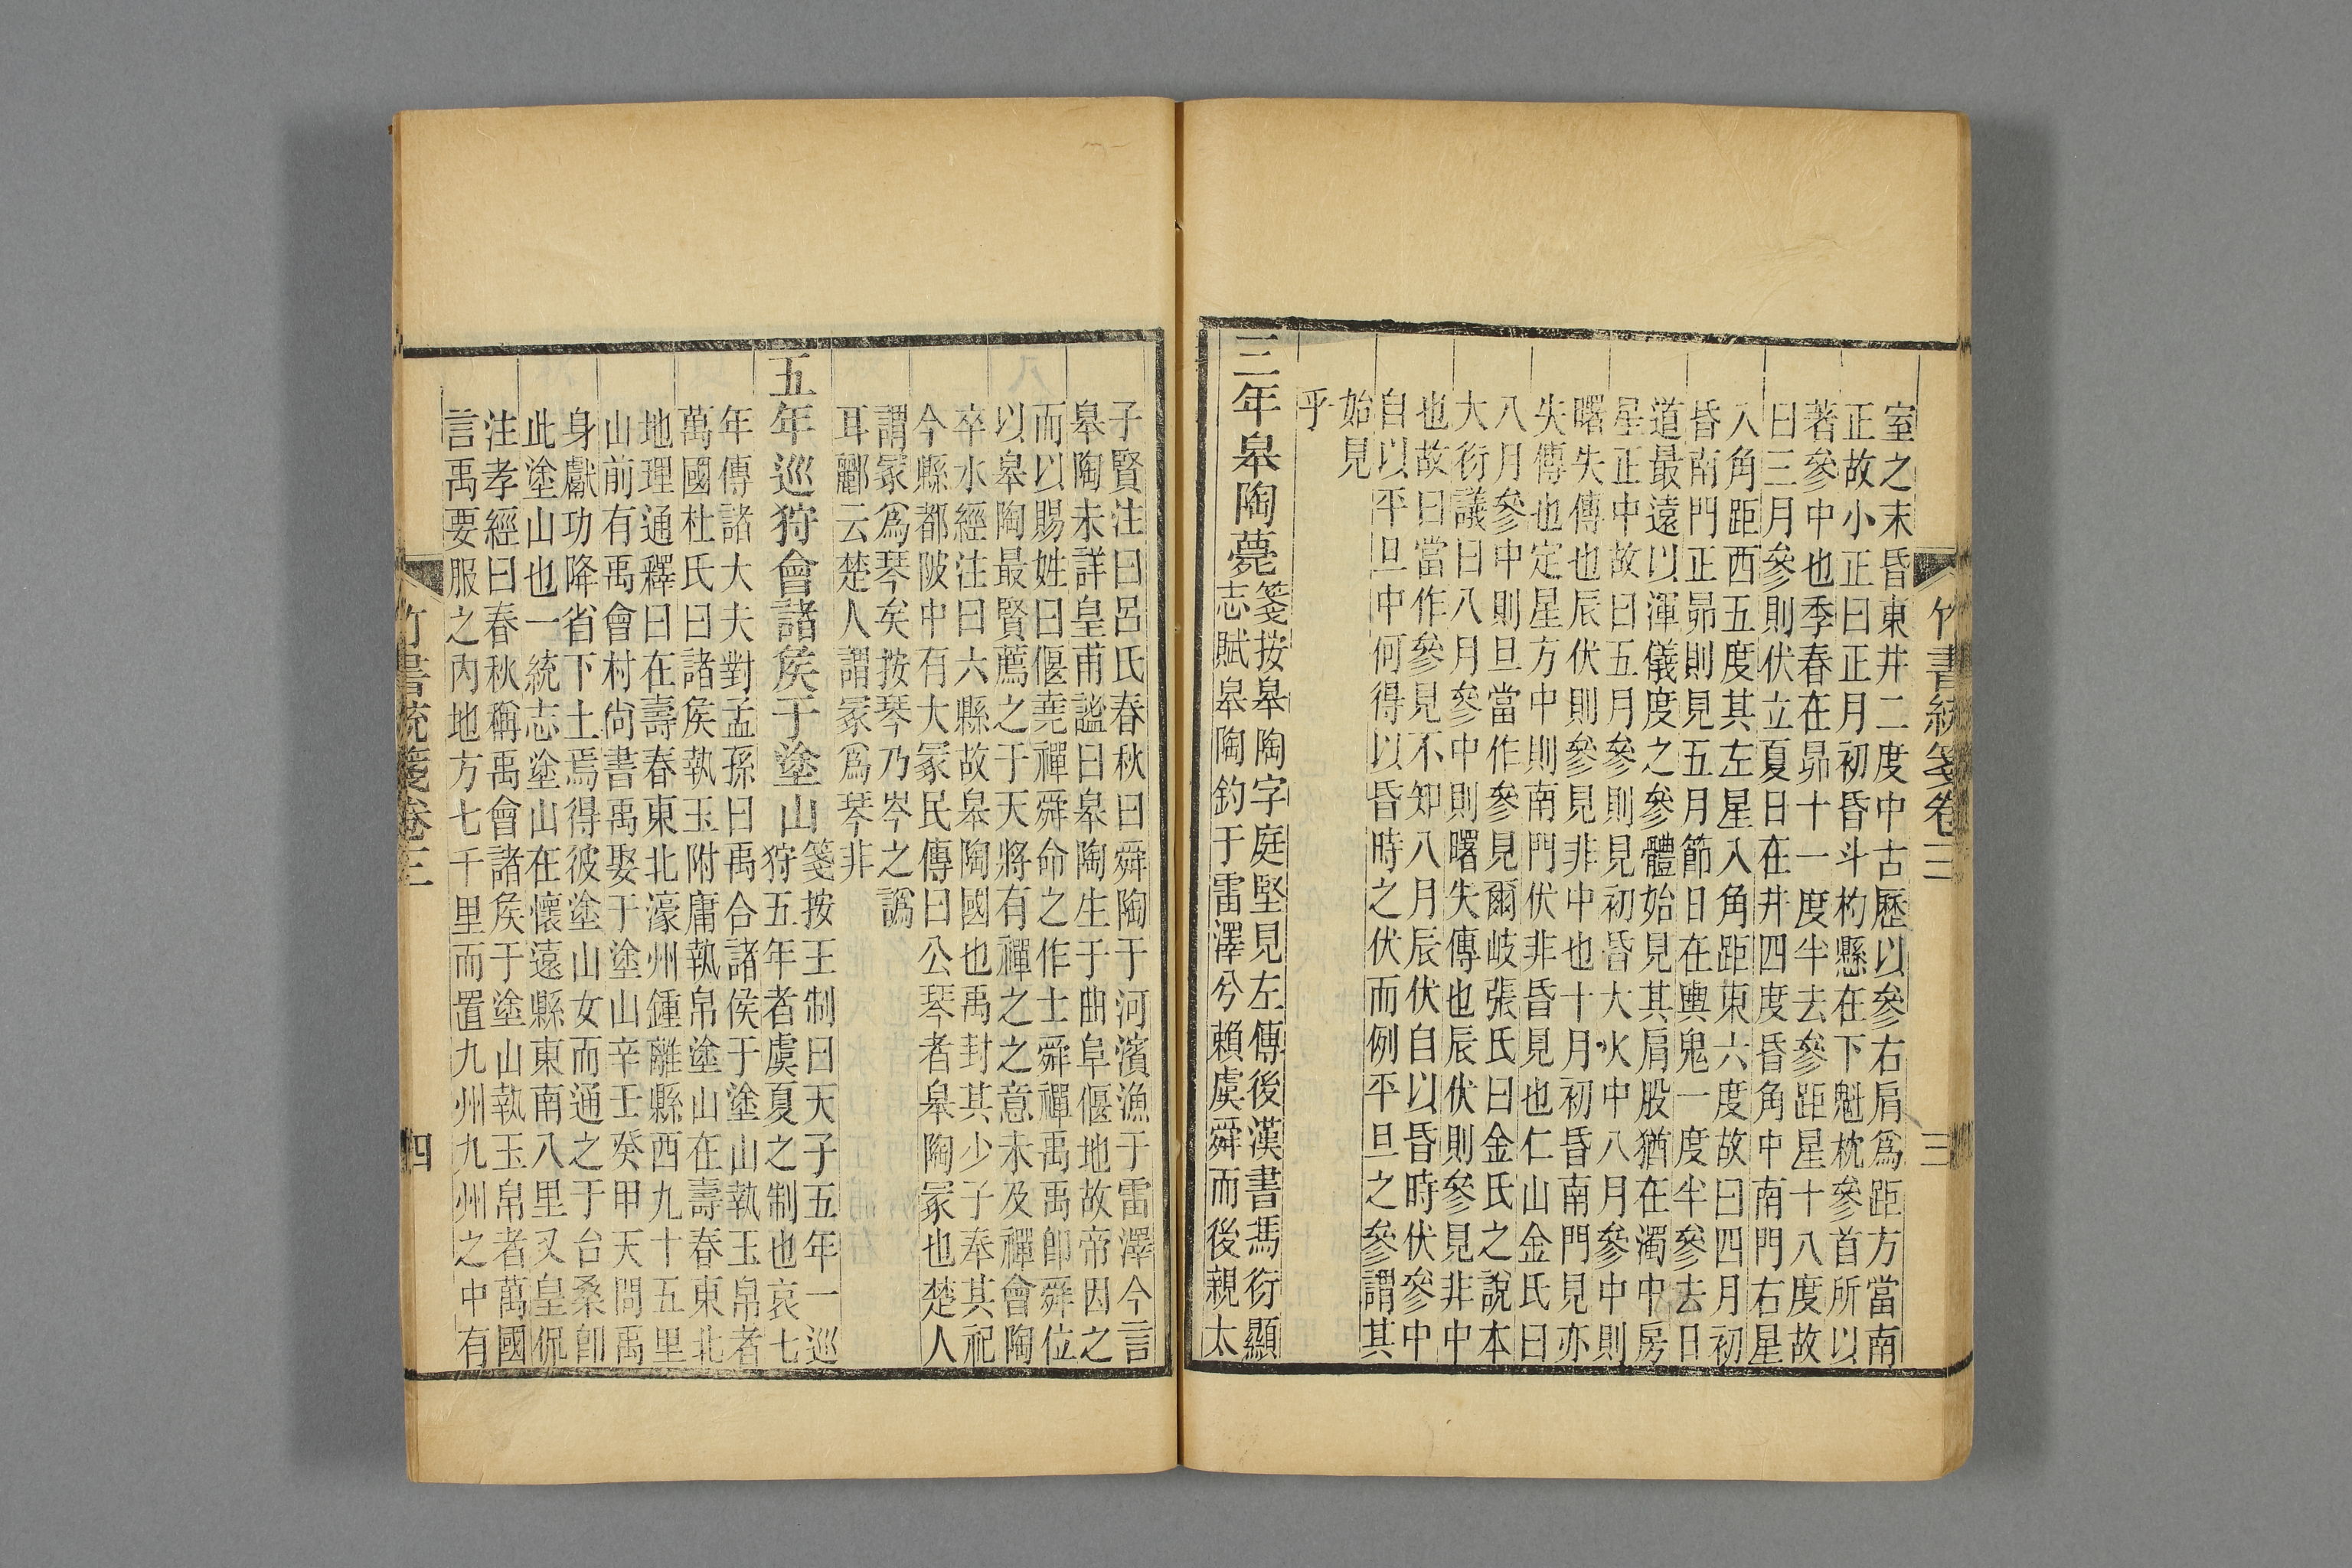 竹書統箋卷三
三
室之末昏東井二度中古歷以參右肩爲距方當南
正故小正曰正月初昏斗杓懸在下魁枕參首所以
著參中也季春在昴十一度半去參距星十八度故
曰三月參則伏立夏日在井四度昏角中南門右星
入角距西五度其左星入角距東六度故曰四月初
昏南門正昴則見五月節日在輿鬼一度半參去日
道最遠以渾儀度之參體始見其肩股猶在濁中房
星正中故曰五月參則見初昏大火中八月參中則
曙失傳也辰伏則參見非中也十月初昏南門見亦
失傳也定星方中則南門伏非昏見也仁山金氏曰
八月參中則旦當作參見爾岐張氏曰金氏之說本
大衍議曰八月參中則曙失傳也辰伏則參見非中
也故曰當作參見不知八月辰伏自以昏時伏參中
自以平旦中何得以昏時之伏而例平旦之參謂其
始見
乎
三年皋陶薨箋按皋陶字庭堅見左傳後漢書馮衍顯
志賦皋陶釣于雷澤兮賴虞舜而後親太
子賢注曰呂氏春秋曰舜陶于河濱漁于雷澤今言
皋陶未詳皇甫謐曰皋陶生于曲阜偃地故帝因之
而以賜姓曰偃堯禪舜命之作士舜禪禹禹卽舜位
以皋陶最賢薦之于天將有禪之之意未及禪會陶
卒水經注曰六縣故皋陶國也禹封其少子奉其祀
今縣都陂中有大冢民傳曰公琴者皋陶冢也楚人
謂冢爲琴矣按琴乃岑之譌
耳酈云楚人謂冢爲琴非
五年巡狩會諸矦于塗山箋按王制曰天子五年一巡
狩五年者虞夏之制也哀七
年傳諸大夫對孟孫曰禹合諸侯于塗山執玉帛者
萬國杜氏曰諸矦執玉附庸執帛塗山在壽春東北
地理通釋曰在壽春東北濠州鍾離縣西九十五里
山前有禹會村尙書禹娶于塗山辛壬癸甲天問禹
身獻功降省下土焉得彼塗山女而通之于台桑卽
此塗山也一統志塗山在懷遠縣東南八里又皇侃
注孝經曰春秋稱禹會諸矦于塗山執玉帛者萬國
言禹要服之內地方七千里而置九州九州之中有
竹書統箋卷三
四